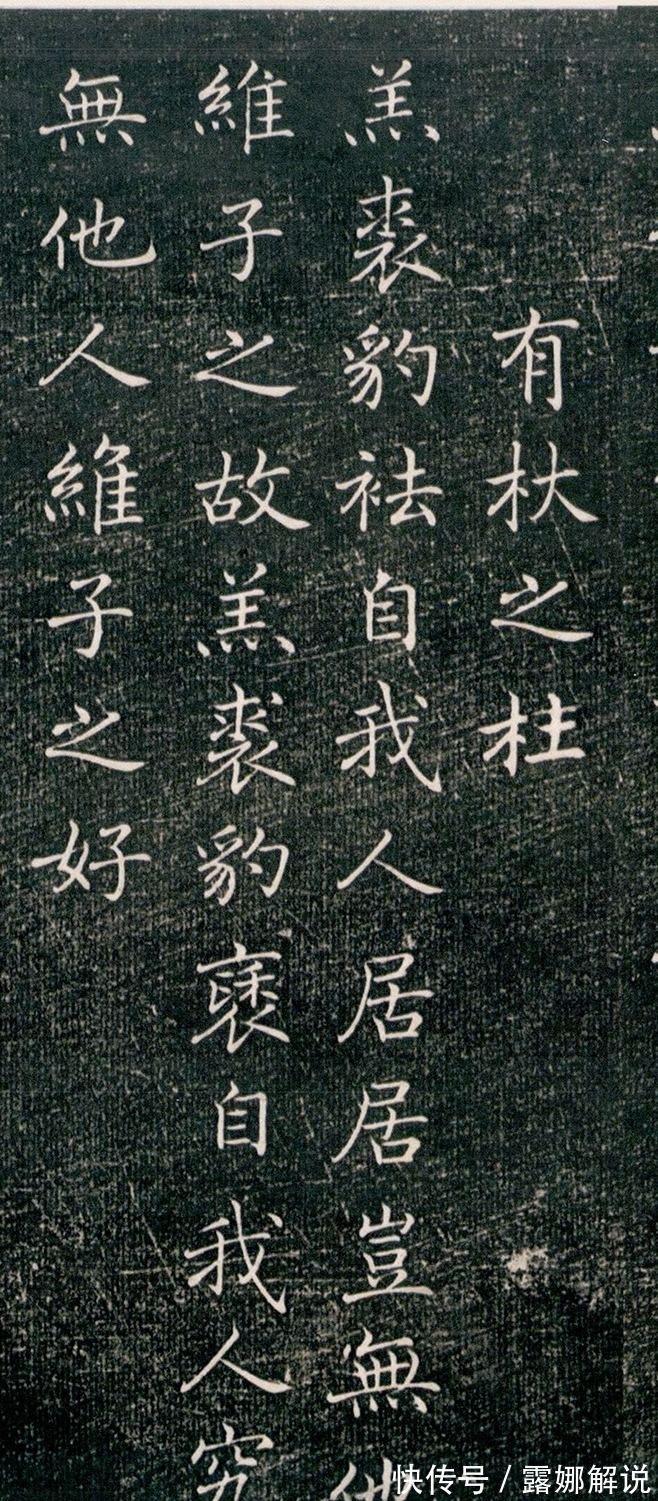 有杕之杜
羔裘豹袪自我人居居豈無他
維子之故羔裘豹褎自我人究
無他人維子之好
快传号 / 露娜解说